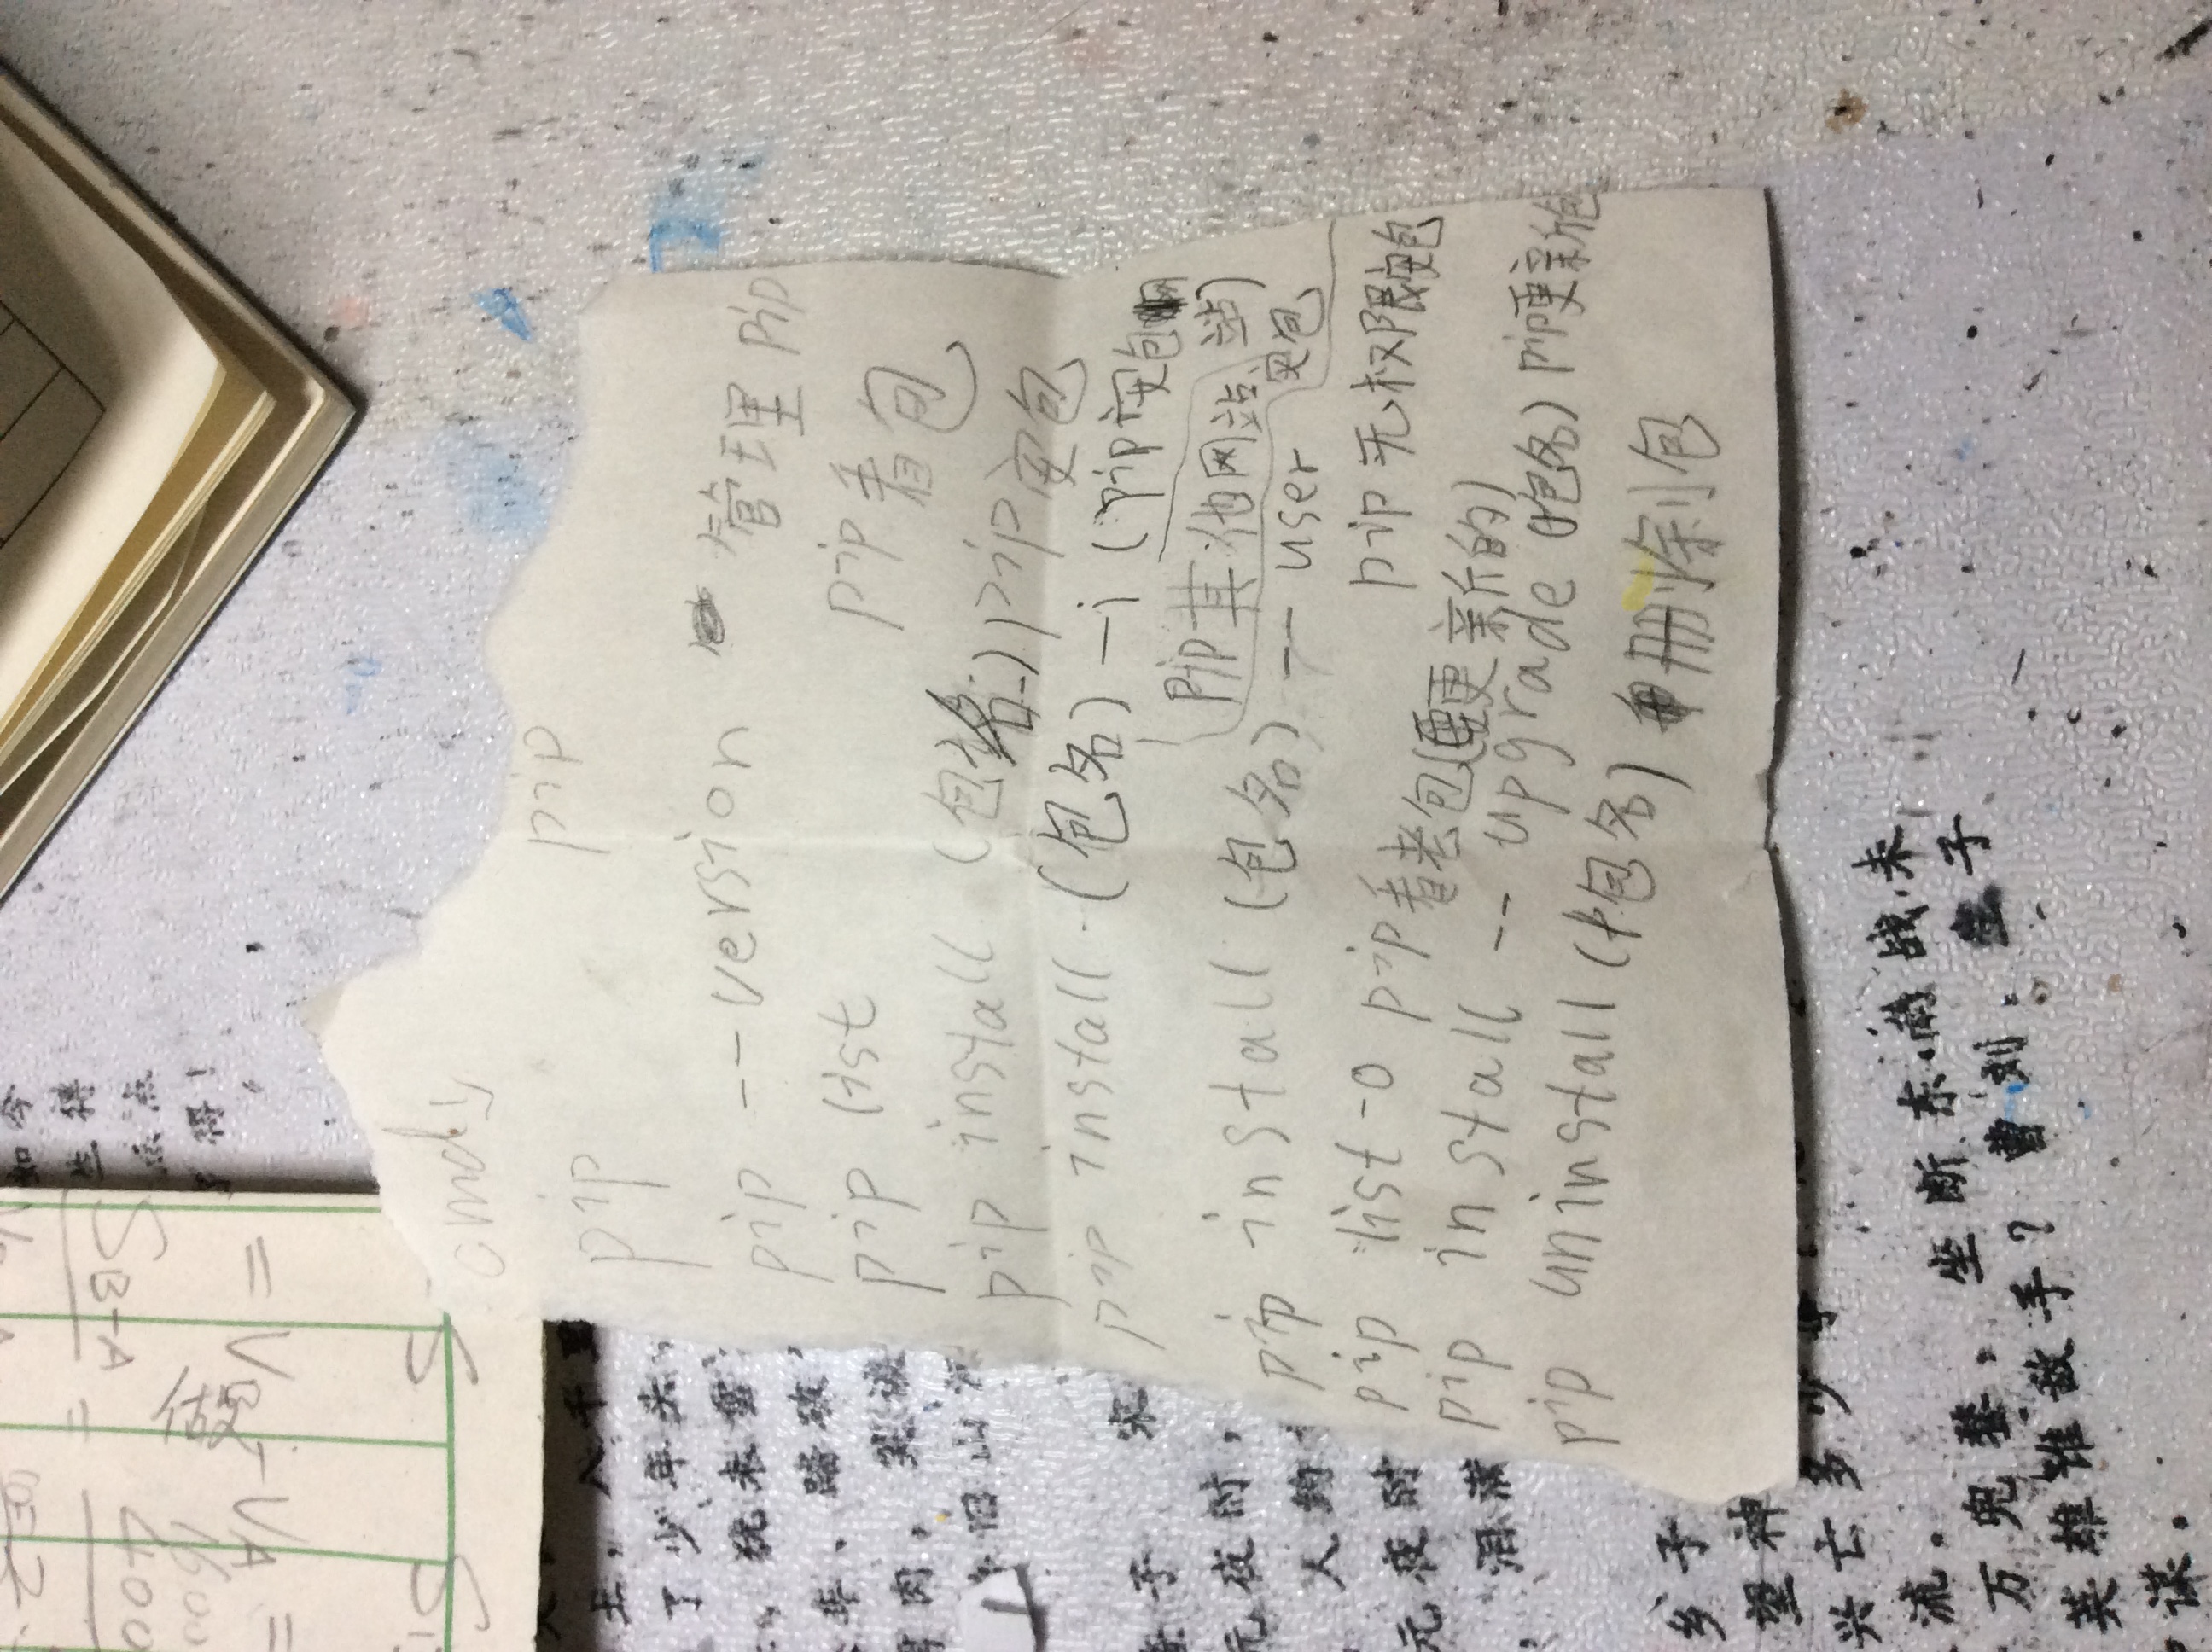 cmd
pip pip
pip --version 管理 pip
pip list pip看包
pip install (包名) pip安包
pip install (包名) -i (pip安包网站)
pip其他网站安包
pip install (包名) --user
pip无权限安包
pip list -o pip看老包(要更新的)
pip install --upgrade (包名) pip更新包
pip uninstall (包名) 删除包
如今
生得
点点
得!
= V
V_A =
S_{B-A}
400
1600
土,八千里
了少年头,
犹未雪
车,踏破
肉,
旧山河
子 宋
元夜时,
人约
元夜时
,泪满
乡子
望神
兴亡多少事?
流。
万兜鍪,坐断东南战未
英雄谁敌手?曹刘,生子
谋。